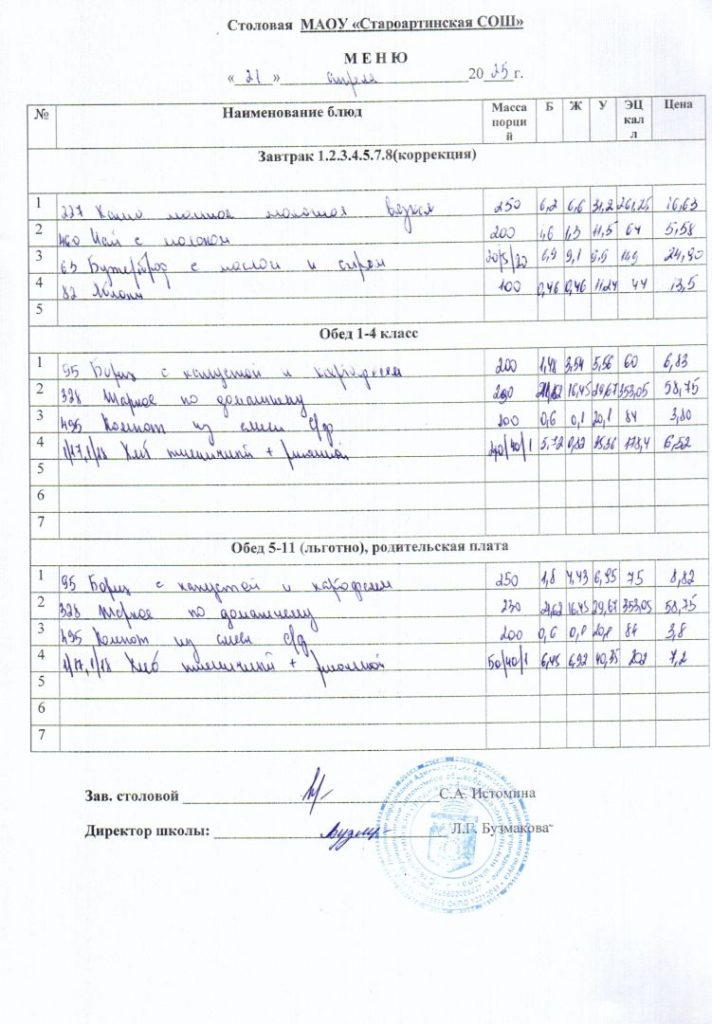 Столовая МАОУ «Староартинская СОШ»
М Е Н Ю
« 21 » апреля 20 25 г.
№ Наименование блюд Масса порций Б Ж У ЭЦ калл Цена
Завтрак 1.2.3.4.5.7.8(коррекция)
1 227 Каша молочная вязкая 250 6,2 6,6 31,2 261,25 16,63
2 460 Чай с молоком 200 1,6 1,3 11,5 64 5,58
3 63 Бутерброд с маслом и сыром 20/5/20 6,9 9,1 9.9 149
4 82 Яблоки 100 0,46 0,46 11.27 44 13,5
5
Обед 1-4 класс
1 95 Борщ с капустой и картофелем 200 1,48 3,54 5,56 60 6,83
2 328 Жаркое по домашнему 16,45 29,67 353,05 58,75
3 495 Компот из смеси с/ф 200 0,6 0,1 20,1 84 3,80
4 1/17,1/18 Хлеб пшеничный + ржаной 40/40/1 5,72 178,4 6,52
5
6
7
Обед 5-11 (льготно), родительская плата
1 95 Борщ с капустой и картофелем 250 1,8 4.43 6,95 75 8,82
2 328 Жаркое по домашнему 230 16,45 29,67 353,05 58,75
3 495 Компот из смеси с/ф 200 0,6 0,1 20,1 84 3,8
4 1/17,1/18 Хлеб пшеничный + ржаной 50/40/1 6,45 40,35 202 7,2
5
6
7
Зав. столовой С.А. Истомина
Директор школы: Л.Г. Бузмакова